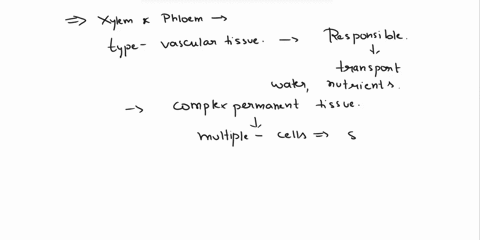 ⇒ Xylem & Phloem →
type - vascular tissue. → Responsible.
↓
transport
water, nutrients.
→ complex permanent tissue.
↓
multiple - cells ⇒ s